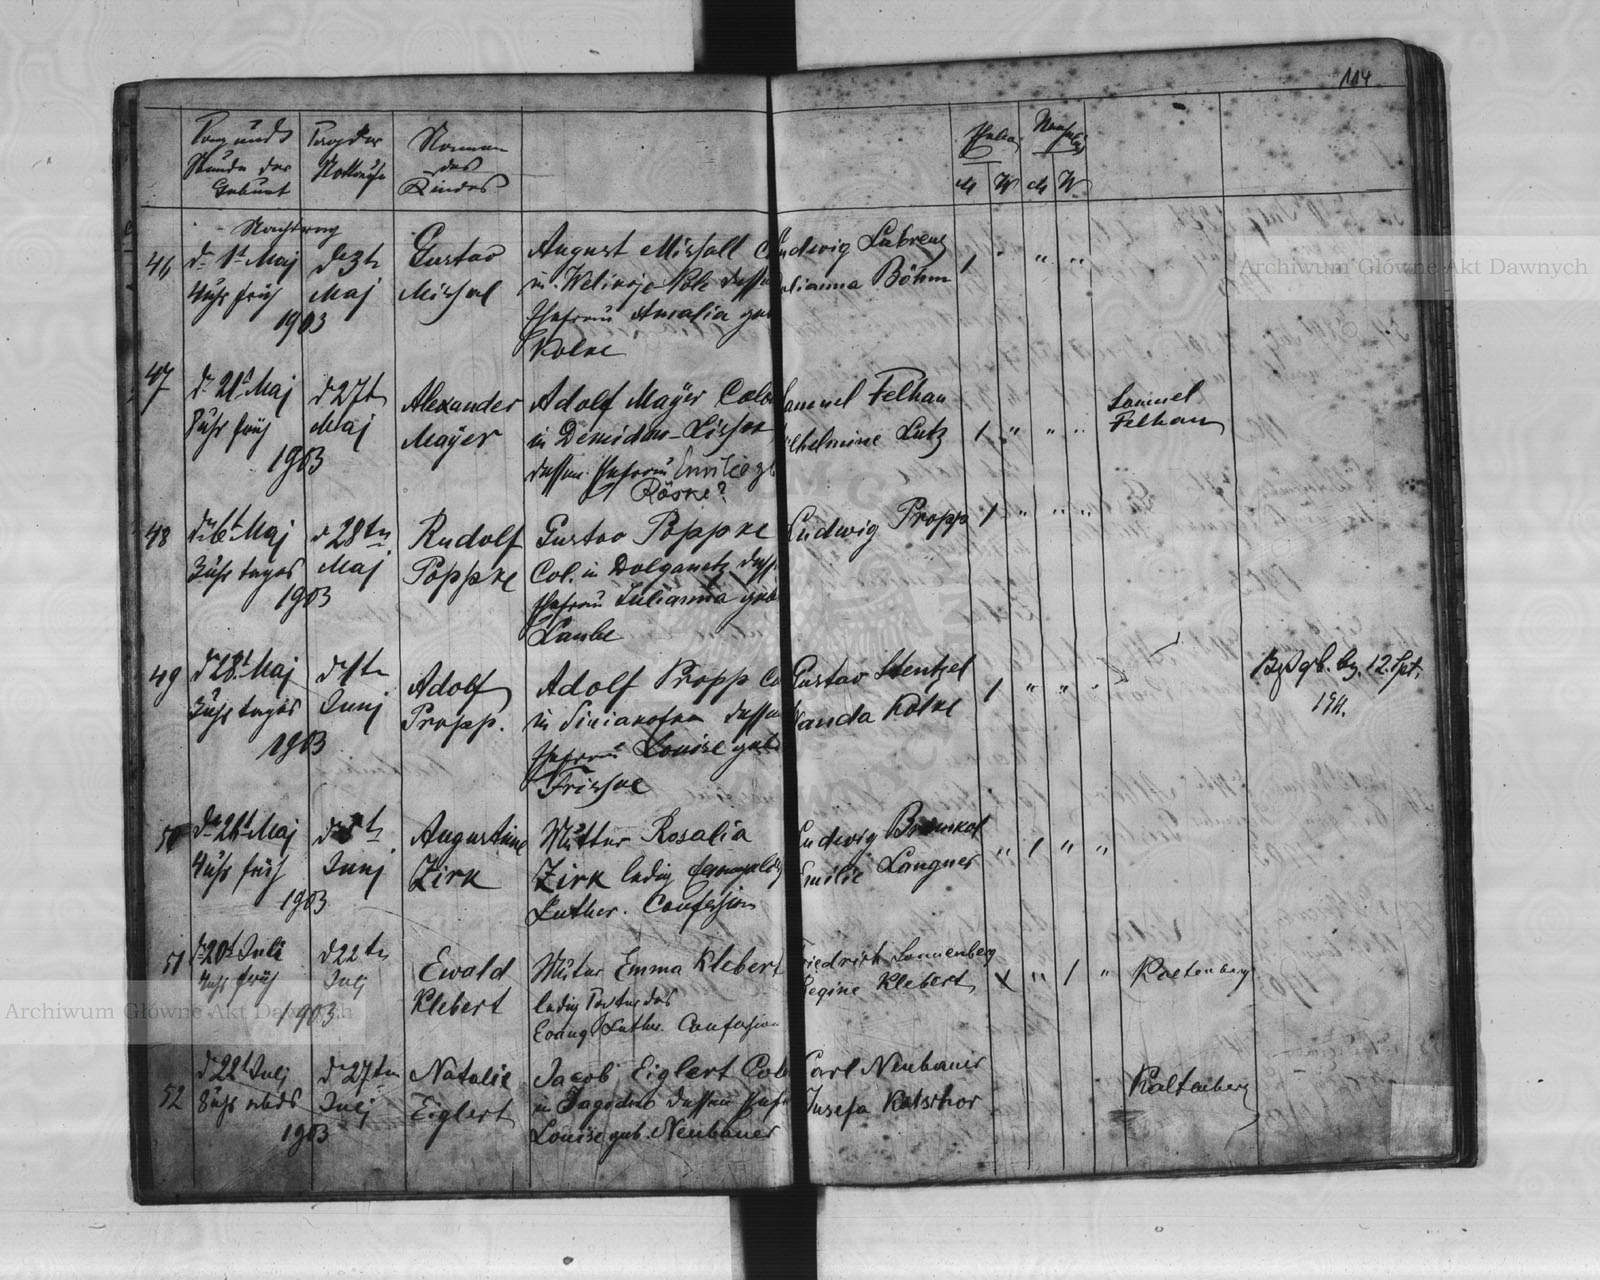 114
Tag und
Stunde der
Geburt
Tag der
Nottaufe
Namen
des
Kindes
M W M W
Nachtrag
46
d. 1t Maj
4 uhr früh
1903
d. 3t
Maj
Gustav
August
in
Ehefrau Amalia geb
Kolke
Ludwig Labrenz
Julianna Böhm
47
d. 21t Maj
8 uhr früh
1903
d 27t
Maj
Alexander
Mayer
Adolf Mayer Colo
in
dessen Ehefrau Emilie gb
Röske?
Samuel Felhau
Wilhelmine Lutz
Samuel
Felhau
48
Maj
3 uhr tages
1903
d 28tn
Maj
Rudolf
Poppke
Gustav Poppke
Col. in Dolganetz dess
Ehefrau Julianna geb
Laube
Ludwig Propp
49
d 28t Maj
3 uhr tages
1903
d 1tn
Junj
Adolf
Propp.
Adolf Propp Co
in dessen
Ehefrau Louise geb
Frischke
Gustav Stentzel
Wanda Kolke
12. Spt.
1941.
50
d 26t Maj
4 uhr früh
1903
Junj
Augustine
Zirk
Mutter Rosalia
Zirk ledig
Luther. Confession
Ludwig
Emilie Langner
51
d 20t Juli
4 uhr früh
1903
d 22tn
Julj
Ewald
Klebert
Mutter Emma Klebert
ledig Tochter des
Evang. Luther. Confession
Friedrich Sonnenberg
Regine Klebert
Kaltenberg
52
d 22t Julj
8 uhr abds
1903
d 27tn
Julj
Natalie
Eiglert
Jacob Eiglert Colo
in dessen Ehef
Louise geb. Neubauer
Carl Neubauer
Josefa Katschor
Kaltenberg
Archiwum Główne Akt Dawnych
Archiwum Główne Akt Dawnych